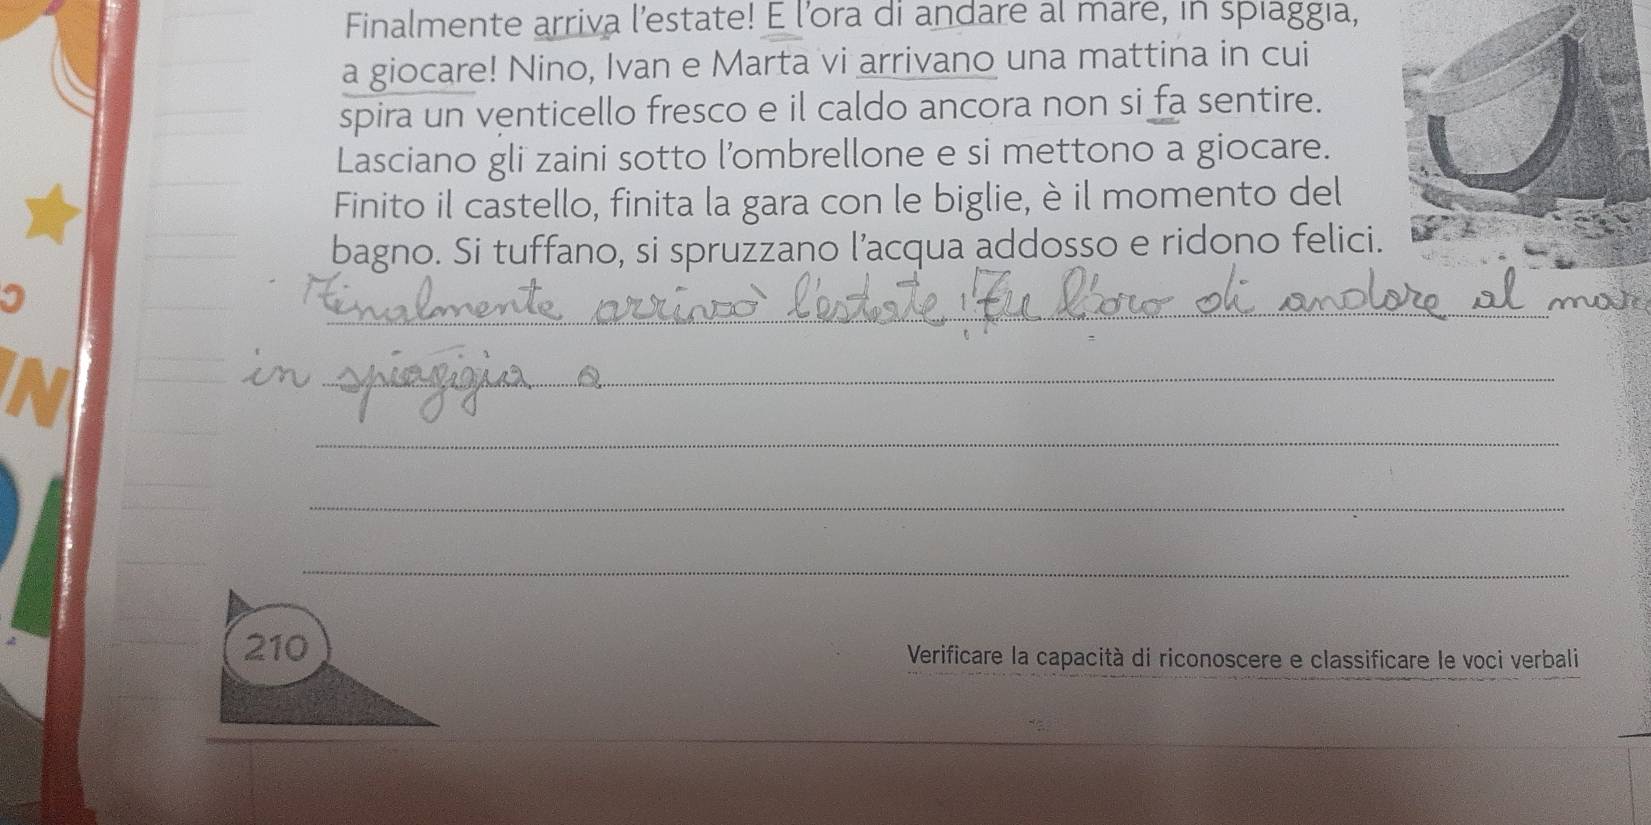 Finalmente arriva l'estate! È l'ora di andare al mare, in spiaggia,
a giocare! Nino, Ivan e Marta vi arrivano una mattina in cui
spira un venticello fresco e il caldo ancora non si fa sentire.
Lasciano gli zaini sotto l'ombrellone e si mettono a giocare.
Finito il castello, finita la gara con le biglie, è il momento del
bagno. Si tuffano, si spruzzano l'acqua addosso e ridono felici.
Finalmente arrivò l'estate! Fu l'ora di andare al mar
in spiagigia a
210
Verificare la capacità di riconoscere e classificare le voci verbali